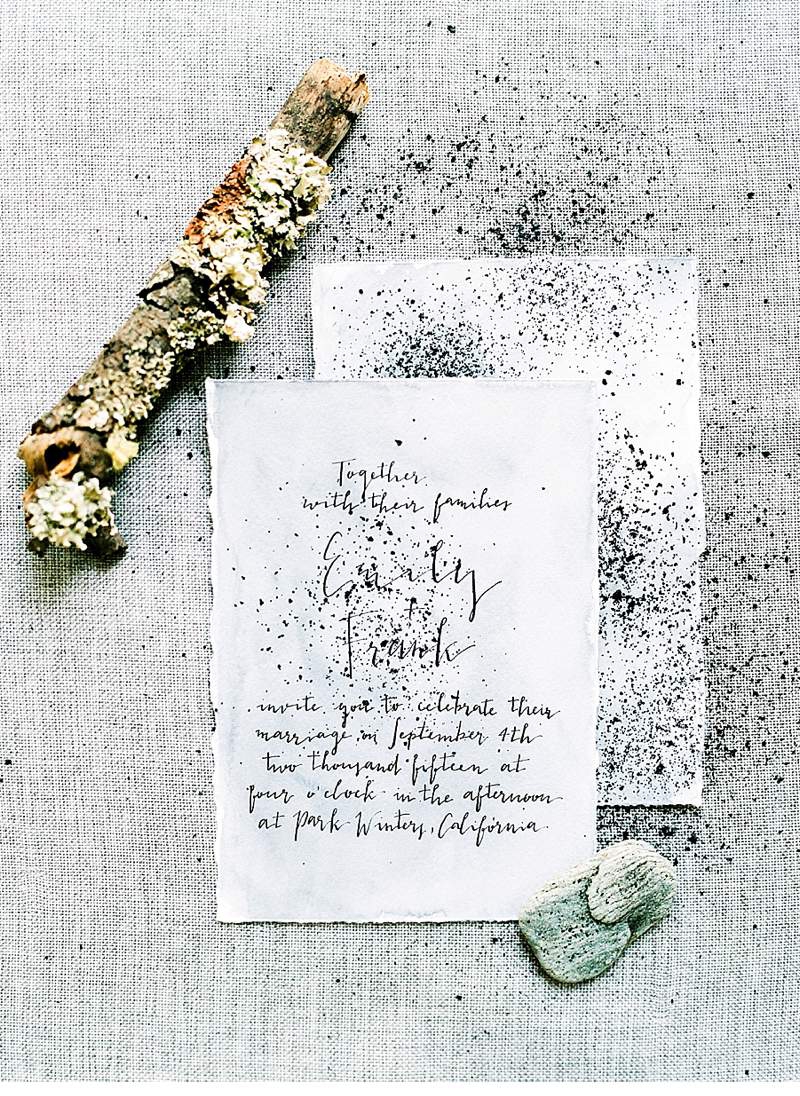 Together
with their families
Emily
+
Frank
invite you to celebrate their
marriage on September 4th
two thousand fifteen at
four o'clock in the afternoon
at Park Winters, California